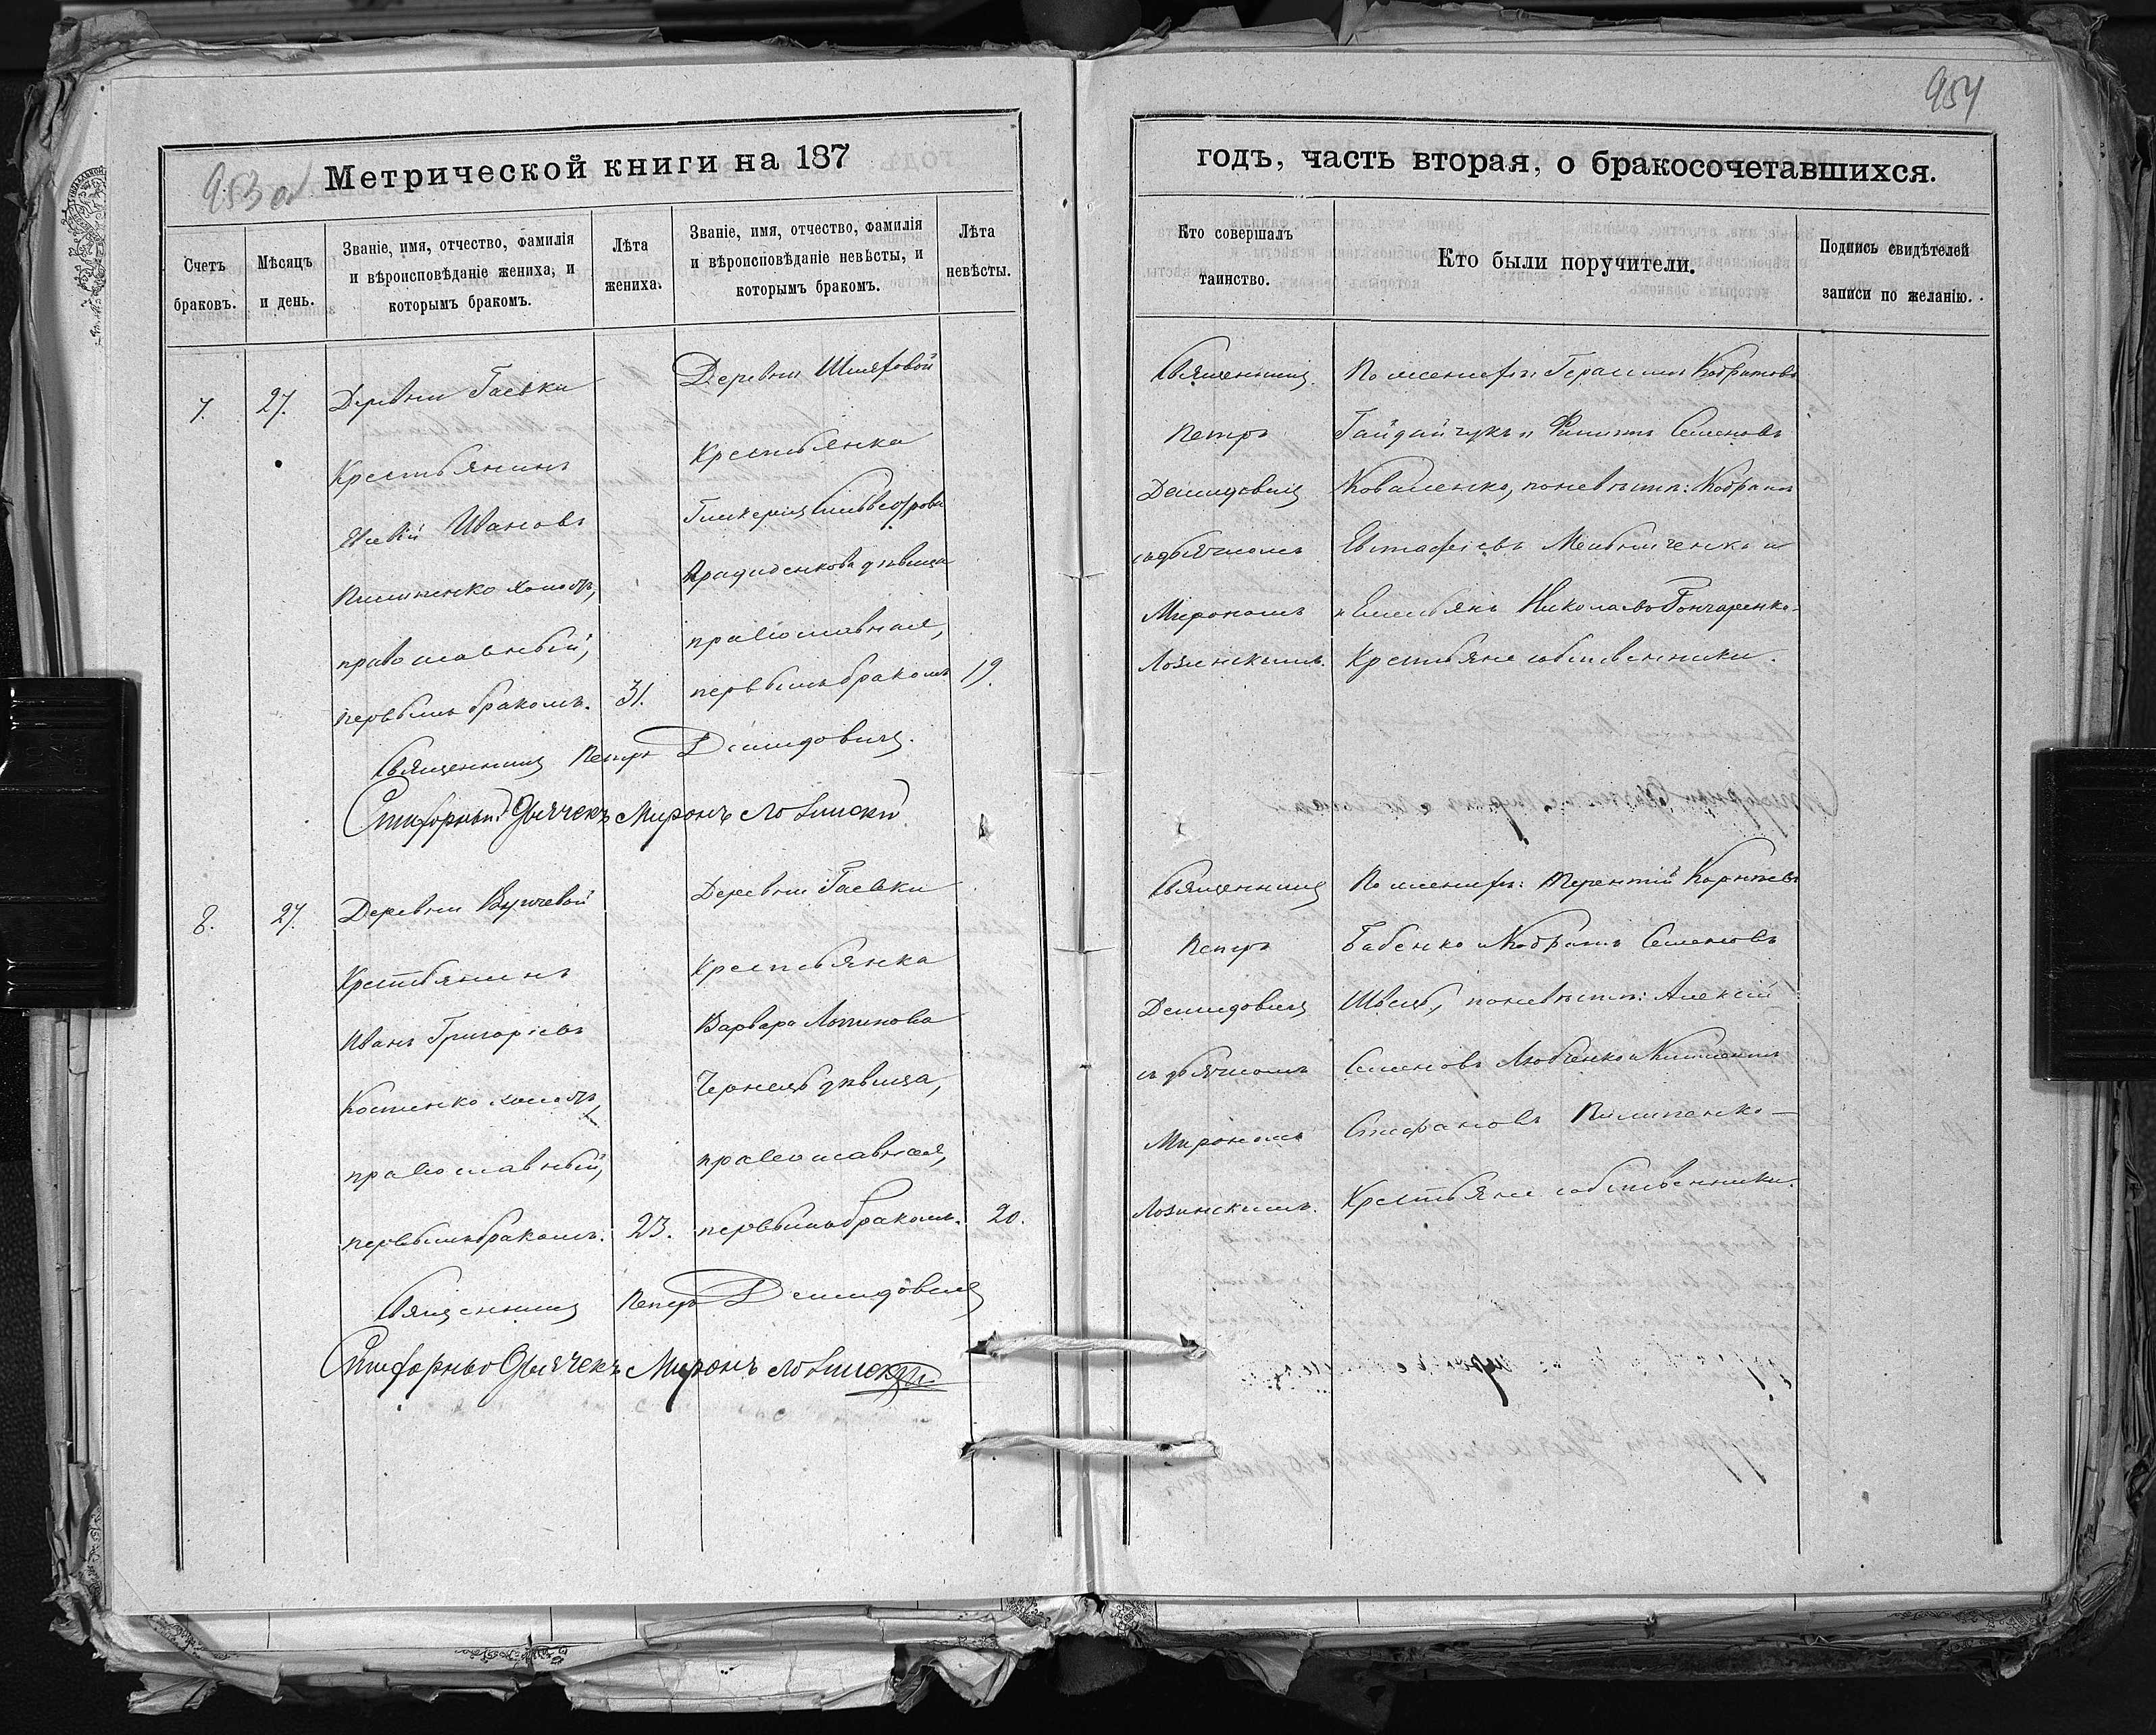 954
953 об
Метрической книги на 187
годъ, часть вторая, о бракосочетавшихся.
Счетъ браковъ.
Мѣсяцъ и день.
Званіе, имя, отчество, фамилія
и вѣроисповѣданіе жениха, и
которымъ бракомъ.
Лѣта
жениха.
Званіе, имя, отчество, фамилія
и вѣроисповѣданіе невѣсты, и
которымъ бракомъ.
Лѣта
невѣсты.
Кто совершалъ
таинство.
Кто были поручители.
Подпись свидѣтелей
записи по желанію.
7.
27.
Деревни Гаевки
Крестьянинъ
Ивановъ
православный,
первымъ бракомъ.
31.
Деревни
Крестьянка
дѣвица
православная,
первымъ бракомъ
19.
Священникъ Петръ Демидовичъ.
Дьячекъ Миронъ Лозинский
Священникъ
Петръ
Демидовичъ
съ дьячкомъ
Мирономъ
Лозинскимъ.
По женихѣ: Герасимъ Кодратовъ
Гайдайчукъ и Филипъ Семеновъ
Коваленко, по невѣстѣ: Кодратъ
Евстафіевъ Мельниченко и
Емельянъ Николаевъ Гончаренко
Крестьяне собственники.
8.
27.
Деревни
Крестьянинъ
Иванъ Григоріевъ
Костенко
православный,
первымъ бракомъ.
23.
Деревни Гаевки
Крестьянка
Варвара Логинова
Чернецъ дѣвица,
православная,
первымъ бракомъ.
20.
Священникъ Петръ Демидовичъ
Дьячекъ Миронъ Лозинский
Священникъ
Петръ
Демидовичъ
съ дьячкомъ
Мирономъ
Лозинскимъ.
По женихѣ: Терентій Корнѣевъ
Бабенко и Кодратъ Семеновъ
Швецъ, по невѣстѣ: Алексій
Семеновъ Любченко и Климентъ
Стефановъ Пилипенко —
Крестьяне собственники.